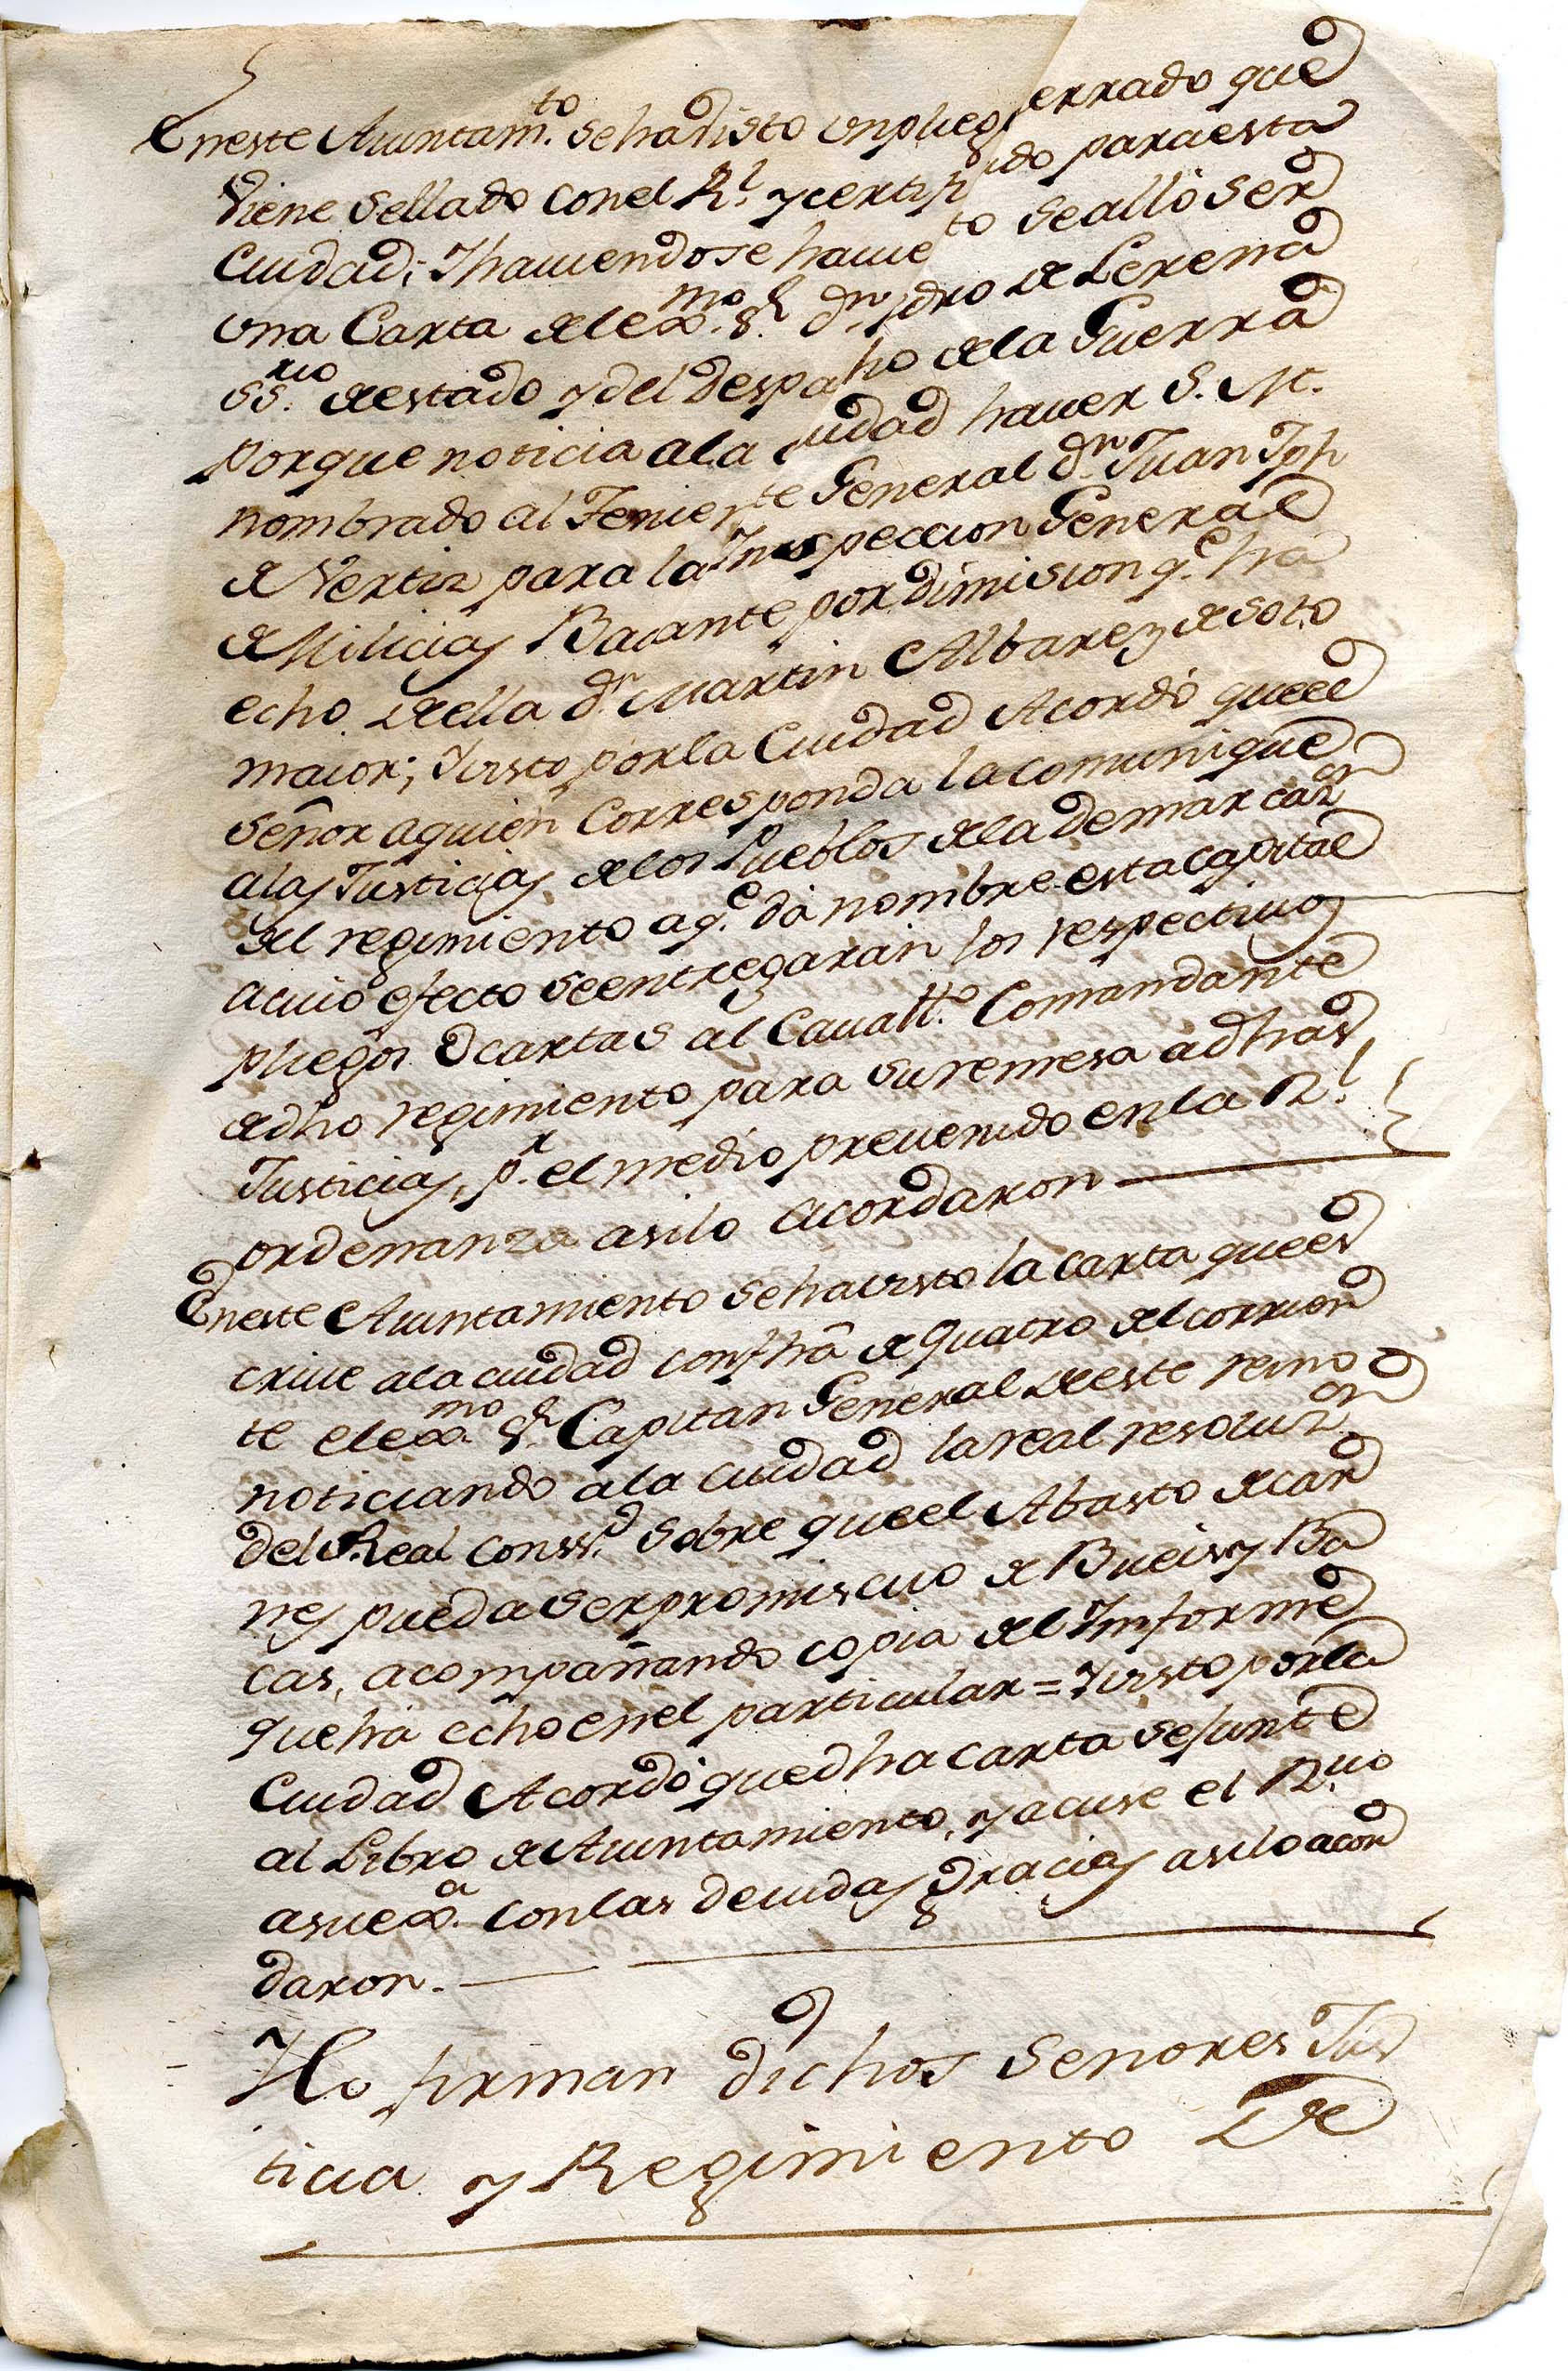 Eneste Aiuntam.to se ha visto un plieg errado que
Viene sellado con el Rl. y certifi ido para esta
Ciudad; Y haviendose havie to se alló ser
una Carta del ex.mo Sr. Dn. Pdro de Lerena
SS.rio de estado y del despa ho de la Guerra
por que noticia a la iudad haver S. M.
nombrado al Teniente General Dn. Juan Jph
de Vertiz para la Inspeccion General
de Milicias Bacante por dimision q.e há
echo de ella Dn. Martin Albarez de Soto
maior; Y visto por la Ciudad Acordó que el
Señor a quien Corresponda la comunique
a las Justicias de los Pueblos de la demarcaz.on
del regimiento a q.e dá nombre esta capital
a cuio efecto se entregarán los respectivos
pliegos o cartas al Cavall.o Comandante
de dho regimiento para su remesa a dhas
Justicias, p.r el medio prevenido en la Rl.
ordenanza asi lo acordaron
Eneste Aiuntamiento se ha visto la carta que es
crive a la ciudad con fhâ de quatro del corrien
te el ex.mo Sr. Capitan General de este reino
noticiando a la ciudad la real resoluz.on
del Real Conss.o sobre que el Abasto de car
nes pueda ser promiscuo de Bueis y Ba
cas, acompañando copia del Imforme
que há echo en el particular = Y visto por la
Ciudad Acordó que dha carta se junte
al Libro de Aiuntamiento, y acuse el R.vo
a su ex.a con las devidas gracias asi lo acor
daron.
Y lo firman dichos Senores Jus
ticia y Regimiento De